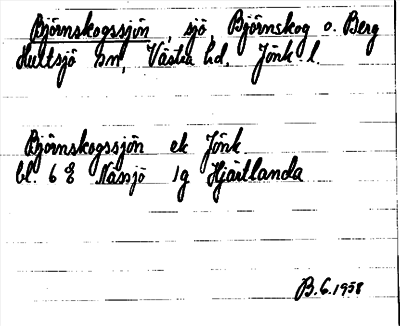 Björnskogssjön, sjö, Björnskog o. Berg
Hultsjö sn, Västra hd, Jönk l.
Björnskogssjön ek Jönk
bl. 6 E Nässjö 1g Hjärtlanda
B.G. 1958